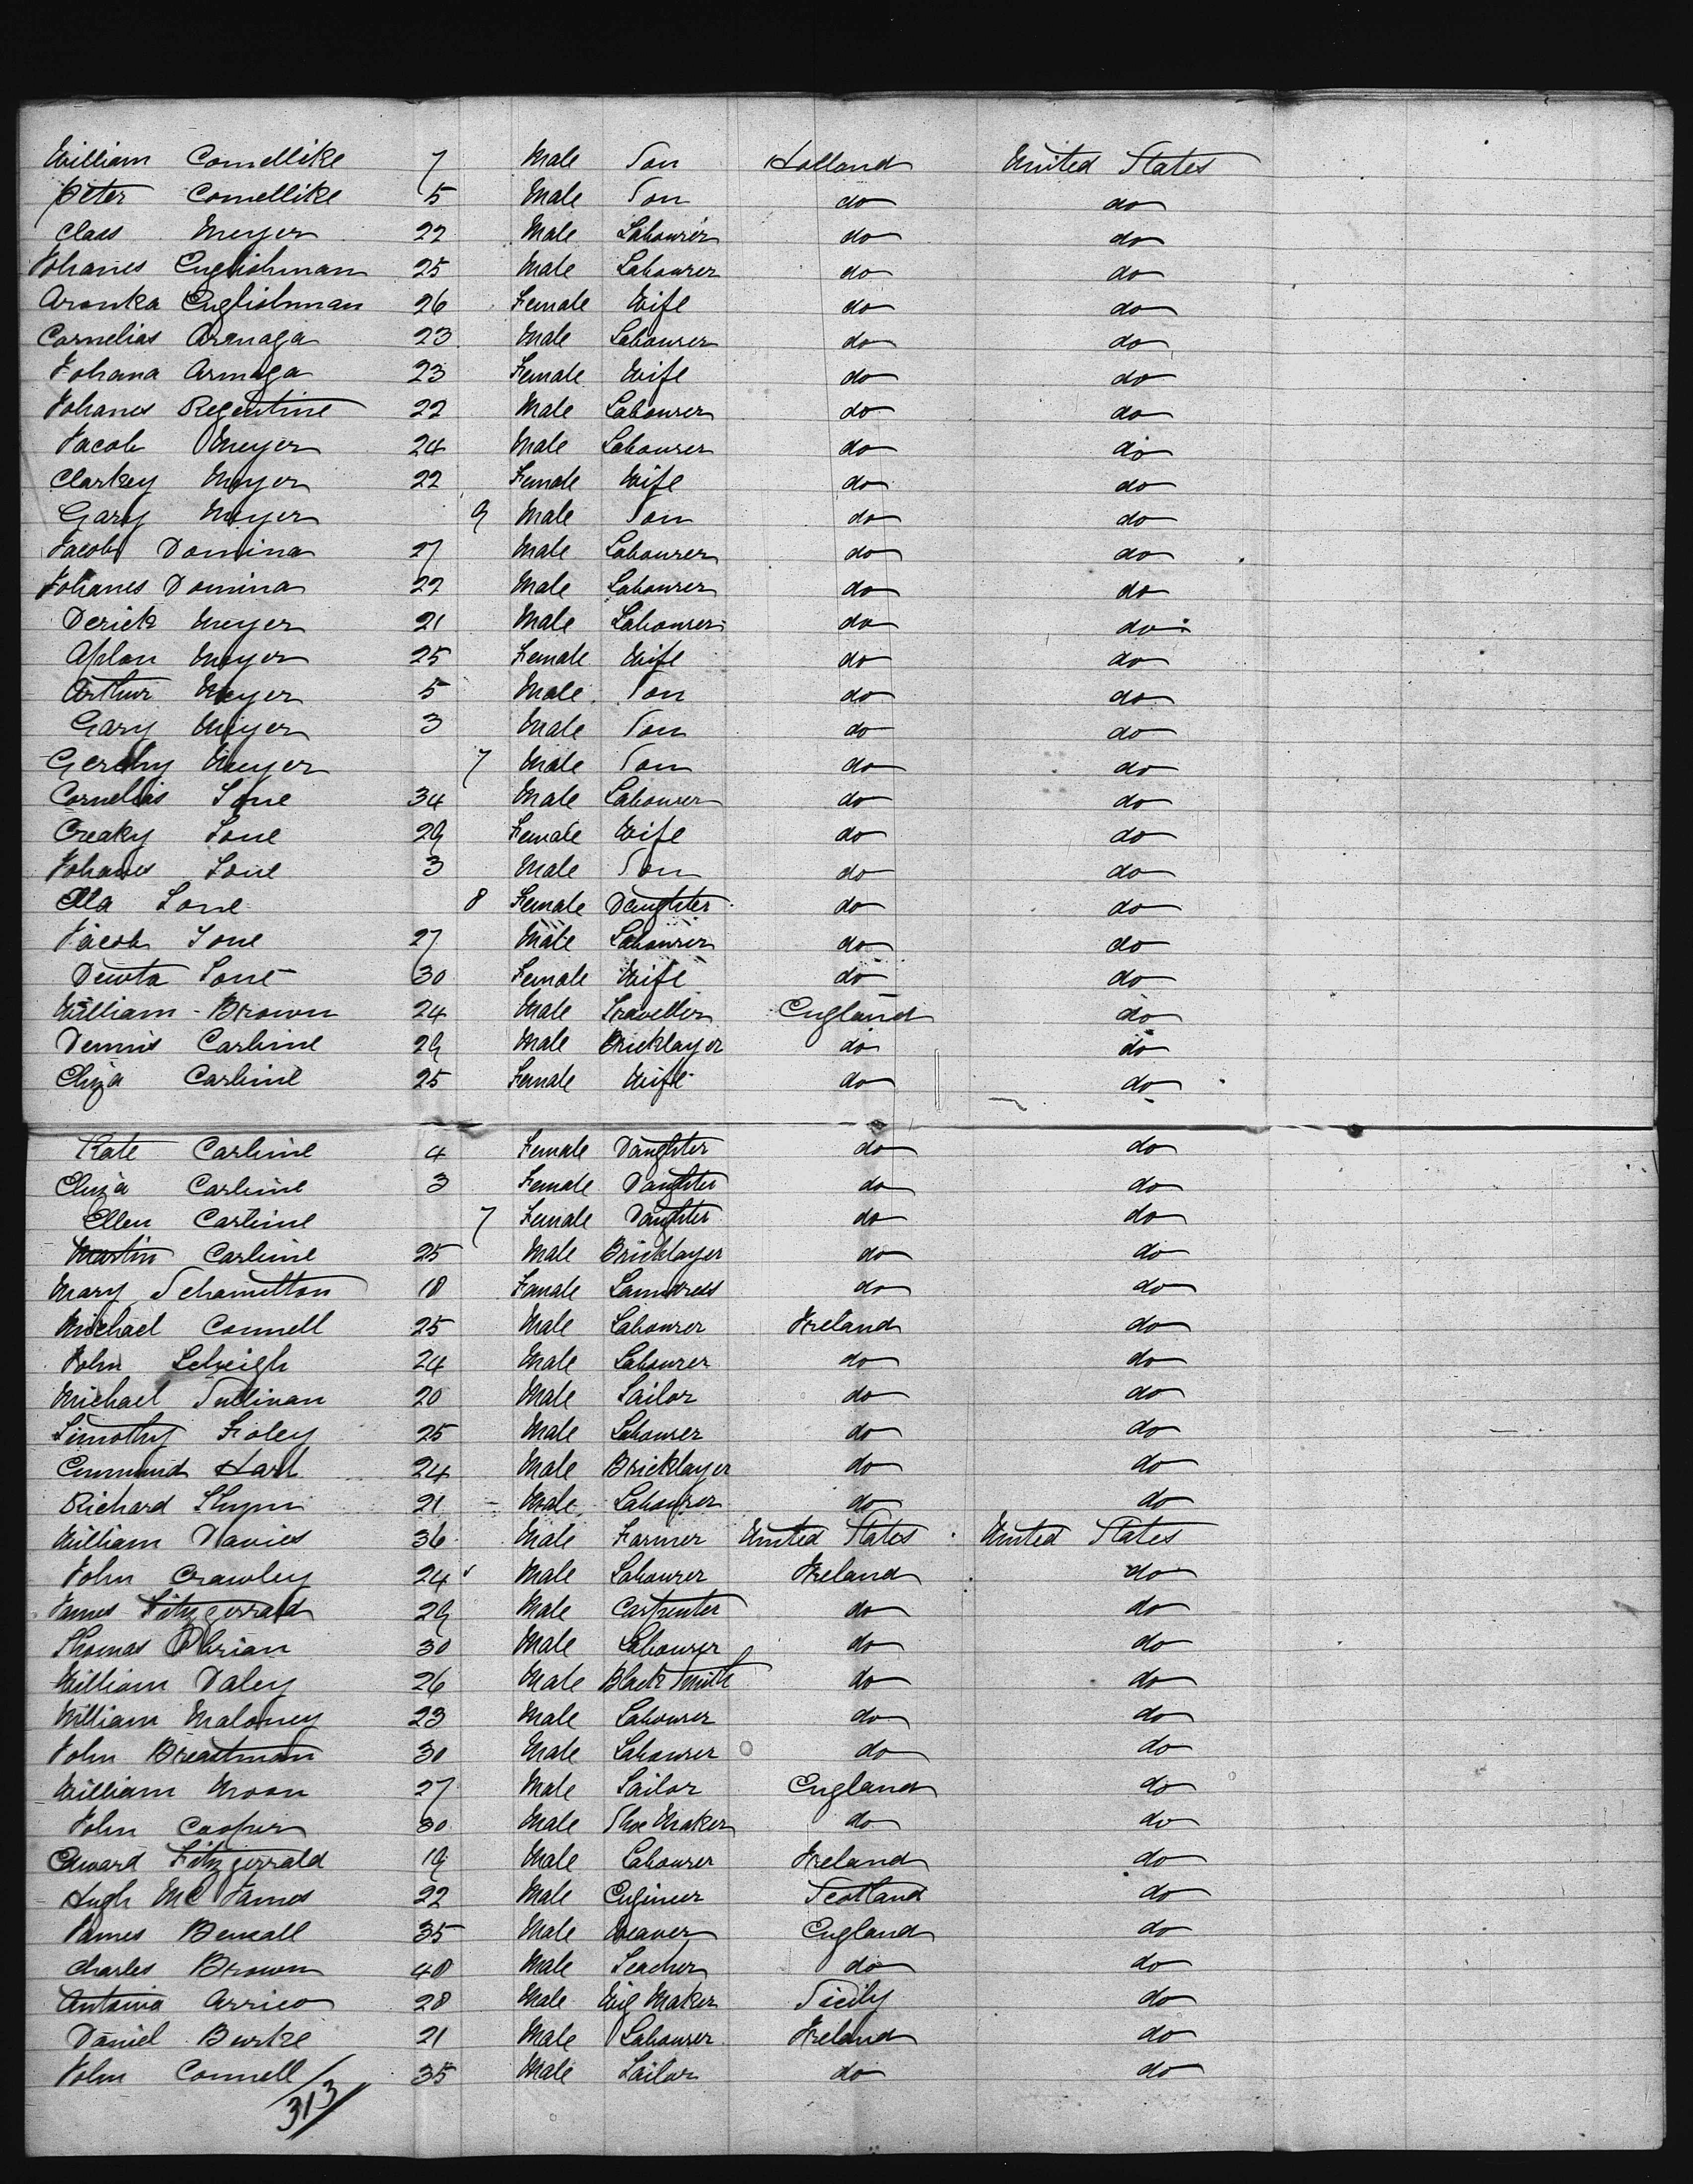 William Comellike 7 Male Son Holland United States
Peter Comellike 5 Male Son do do
Class Meyer 22 Male Labourer do do
Johanes Englishman 25 Male Labourer do do
Aronka Englishman 26 Female Wife do do
Cornelias Armaga 23 Male Labourer do do
Johana Armaga 23 Female Wife do do
Johanes Regentine 22 Male Labourer do do
Jacob Meyer 24 Male Labourer do do
Clarkey Meyer 22 Female Wife do do
Gary Meyer 9 Male Son do do
Jacob Domina 27 Male Labourer do do
Johanes Domina 22 Male Labourer do do
Derick Meyer 21 Male Labourer do do
Aplon Meyer 25 Female Wife do do
Arthur Meyer 5 Male Son do do
Gary Meyer 3 Male Son do do
Gerchy Meyer 7 Male Son do do
Cornelias Sone 34 Male Labourer do do
Creaky Sone 29 Female Wife do do
Johanes Sone 3 Male Son do do
Ella Sone 8 Female Daughter do do
Jacob Sone 27 Male Labourer do do
Dewta Sone 30 Female Wife do do
William Brown 24 Male Traveller England do
Dennis Carline 29 Male Bricklayer do do
Eliza Carline 25 Female Wife do do
Kate Carline 4 Female Daughter do do
Eliza Carline 3 Female Daughter do do
Ellen Carline 7 Female Daughter do do
Martin Carline 25 Male Bricklayer do do
Mary Schamilton 18 Female Laundress do do
Michael Connell 25 Male Labourer Ireland do
John Leheigh 24 Male Labourer do do
Michael Sullivan 20 Male Sailor do do
Timothy Foley 25 Male Labourer do do
Emmund Hart 24 Male Bricklayer do do
Richard Flynn 21 Male Labourer do do
William Davies 36 Male Farmer United States United States
John Crawley 24 Male Labourer Ireland do
James Fitzgerrald 29 Male Carpenter do do
Thomas OBrian 30 Male Labourer do do
William Daley 26 Male Black Smith do do
William Maloney 23 Male Labourer do do
John Breathman 30 Male Labourer do do
William Moon 27 Male Sailor England do
John Cooper 30 Male Shoe Maker do do
Edward Fitzgerrald 19 Male Labourer Ireland do
Hugh Mc James 22 Male Engineer Scotland do
James Bencall 35 Male Weaver England do
Charles Brown 40 Male Teacher do do
Antonia Arrico 28 Male Wig Maker Sicily do
Daniel Burke 21 Male Labourer Ireland do
John Connell 35 Male Sailor do do
313